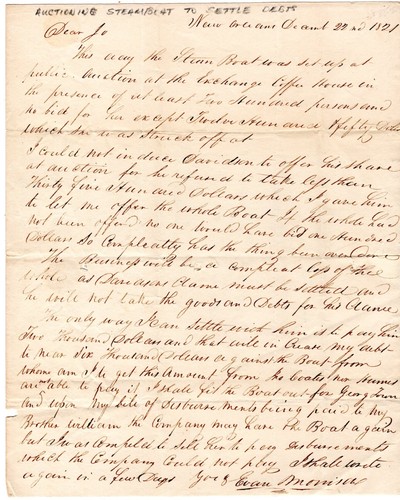 AUCTIONING STEAMBOAT TO SETTLE DEBTS
New Orleans Decmb 22nd 1821
Dear Jo
This day the Steam Boat was set up at
public Auction at the Exchange Coffee House in
the presence of at least Two Hundred persons and
no bid for her except Twelve Hundred & fifty Dollars
which She was Struck off at
I could not induce Davidson to offer his share
at auction for he refused to take less than
Thirty five Hundred Dollars which I gave him
to let me offer the whole Boat If the whole had
not been offerd no one would have bid one Hundred
Dollars So Compleatly has the thing been
The Business will be a compleat loss of the
whole as Davidsons Clame must be Settled and
he will not take the goods and Debts for his Clame
The only way I can Settle with him is to pay him
Two Thousand Dollars and that will in Crease my debt
to near Six Thousand Dollars against the Boat from
whome am I to get this Amount from
are able to pay it I shall fix the Boat out for
and upon my bill of Disbursements being paid to my
Brother William the Company may have the Boat again
but I was Compeld to Sell her to pay Disbursements
which the Company Could not pay I shall write
again in a few Days Yours Evan Morrison